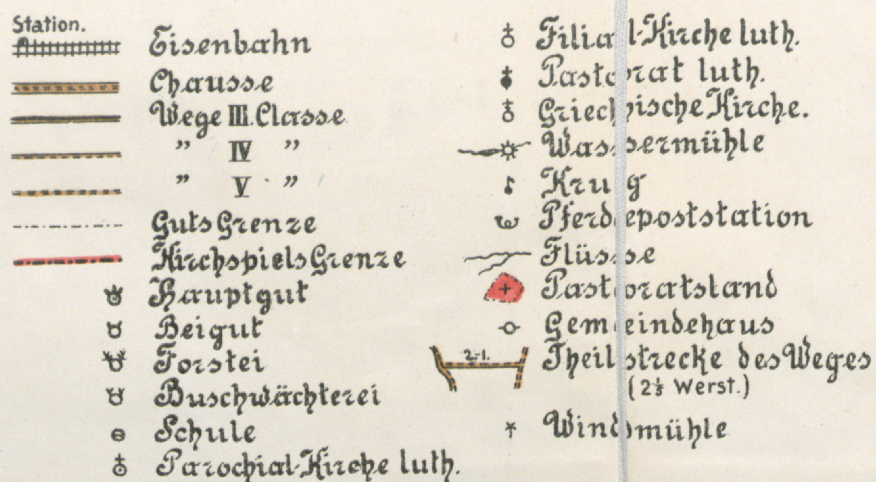 Station.
Eisenbahn
Chausse
Wege III. Classe
" IV "
" V "
Guts Grenze
Kirchspiels Grenze
Hauptgut
Beigut
Forstei
Buschwächterei
Schule
Parochial-Kirche luth.
Filial-Kirche luth.
Pastorat luth.
Griechische Kirche.
Wassermühle
Krug
Pferdepoststation
Flüsse
Pastoratsland
Gemeindehaus
2⅓.
Theilstrecke des Weges
(2⅓ Werst.)
Windmühle